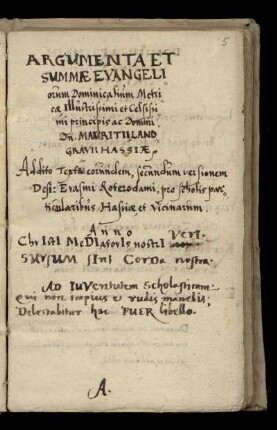 5
ARGUMENTA ET
SUMMÆ EVANGELI
orum Dominicalium Metri
cæ Illustrissimi et Celsissi
mi principis ac Domini
Dn. MAURITII LAND
GRAVII HASSIÆ,
Addito Textu eorundem, secundum versionem
Desi: Erasmi Roterodami, pro scholis par-
ticularibus Hassiæ et Vicinarum.
Anno
ChrIstI MeDIatorIs nostrI Veri.
SVrsVM sInt CorDa nostra.
AD IUVentutem Scholasticam
QVi non impius & rudis manebis,
Delectabitur hoc PUER libello.
A.